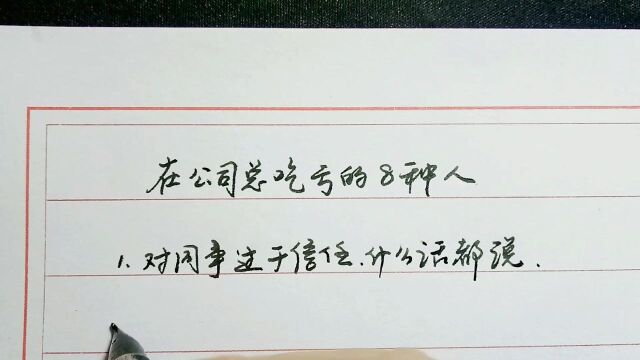 在公司总吃亏的8种人
1、对同事过于信任、什么话都说.